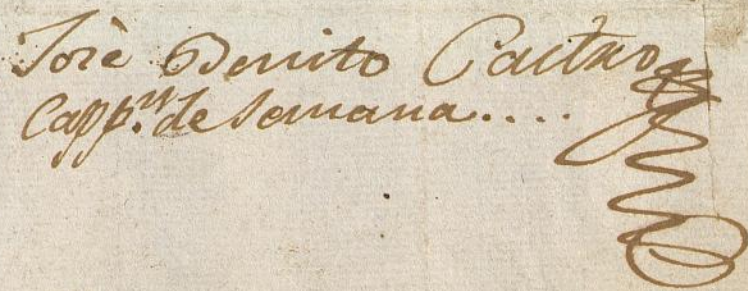 Josè Benito Castro
Capp.n de Semana....